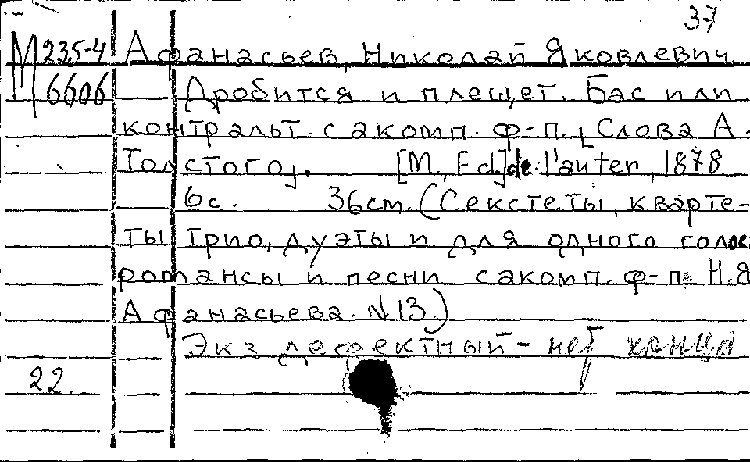 37
М 235-4 Афанасьев, Николай Яковлевич
6606 Дробится и плещет. Бас или
контральт. с акомп. ф-п. [Слова А.
Толстого]. [М., Ed.] de l'auter, 1878
6с. 36cm. (Секстеты, кварте-
ты трио, дуэты и для одного голос
романсы и песни с акомп. ф-п. Н.Я
Афанасьева. №13.)
Экз дефектный - нет конца
22.